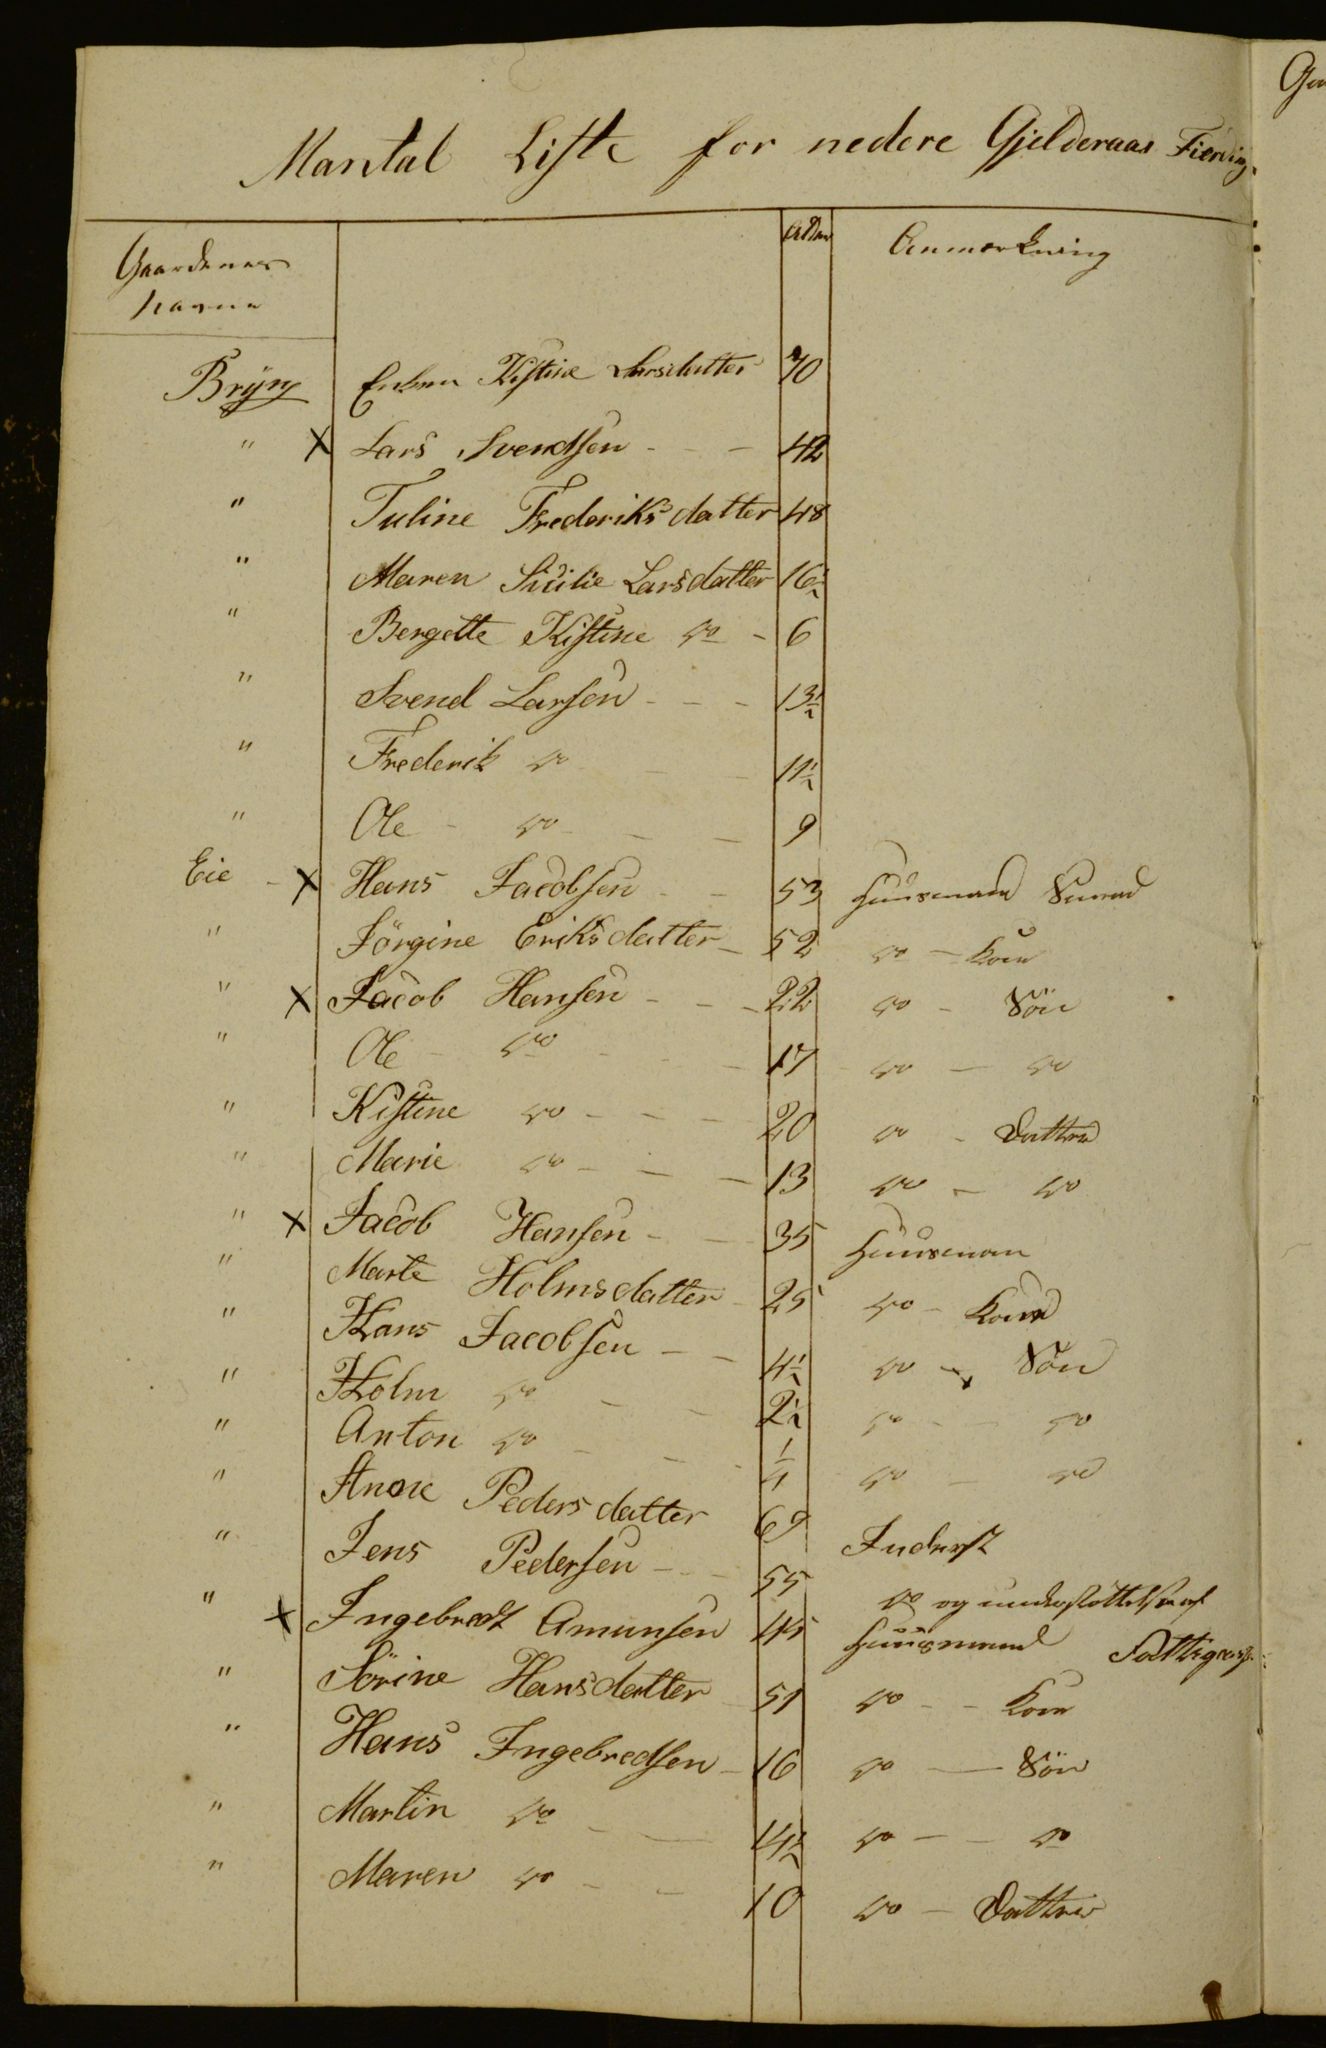 Mantal Liste for nedere Gjelderaas Fierding
Gaardenes Navne Alder Anmærkning
Bryn Enken Kistine Larsdatter 70
" X Lars Svendsen - - 42
" Tuline Frederiksdatter 48
" Maren Sicilie Larsdatter 16½
" Bergette Kistine do - 6
" Svend Larsen - - - 13½
" Frederik do - - 11½
" Ole - do - - - 9
Eie - X Hans Jacobsen - - 53 Huusmand Svend
" Jörgine Eriksdatter - 52 do - Kone
" X Jacob Hansen - - - 22 do - Sön
" Ole - do - - - 17 do - do
" Kistine do - - - 20 do - Datter
" Marie do - - - 13 do - do
" X Jacob Hansen - - 35 Huusman
" Marte Holmsdatter - 25 do - Kone
" Hans Jacobsen - - 4½ do - Sön
" Holm do - - 2½ do - do
" Anton do - - ¼ do - do
" Anne Pedersdatter 69 Inderst
" Jens Pedersen - - 55 do og understöttelse af
" X Ingebredt Amunsen 45 Huusmand Fattigcasse
" Sörine Hansdatter 51 do - - Kone
" Hans Ingebredsen - 16 do - Sön
" Martin do - - 14½ do - - do
" Maren do - - 10 do - Datter